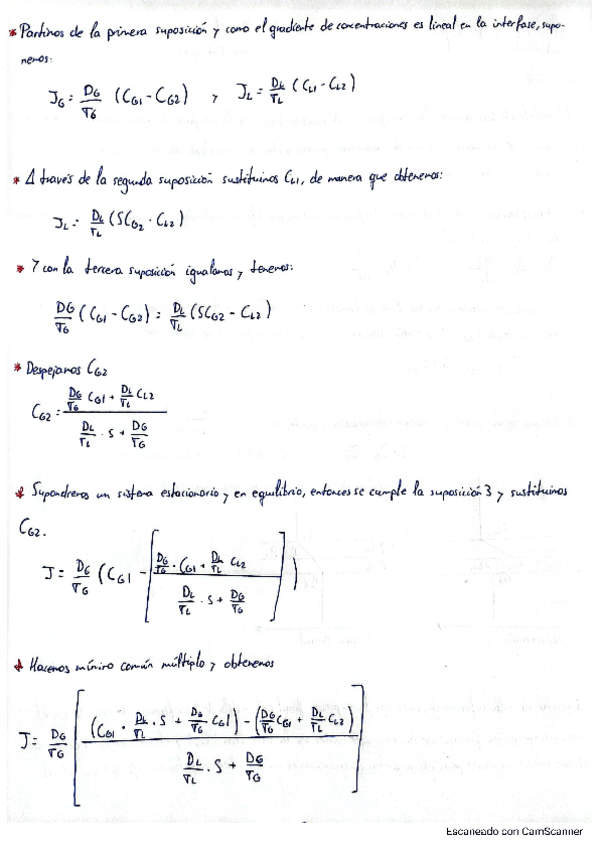 * Partimos de la primera suposición y como el gradiente de concentraciones es lineal en la interfase, supo-
nemos:
J_G = D_G/τ_G (C_G1 - C_G2) , J_L = D_L/τ_L (C_L1 - C_L2)
* A través de la segunda suposición sustituimos C_L1, de manera que obtenemos:
J_L = D_L/τ_L (SC_G2 - C_L2)
* Y con la tercera suposición igualamos y tenemos:
D_G/τ_G (C_G1 - C_G2) = D_L/τ_L (SC_G2 - C_L2)
* Despejamos C_G2
C_G2 = (D_G/τ_G C_G1 + D_L/τ_L C_L2) / (D_L/τ_L · S + D_G/τ_G)
* Supondremos un sistema estacionario y en equilibrio, entonces se cumple la suposición 3 y sustituimos
C_G2.
J = D_G/τ_G (C_G1 - [(D_G/τ_G · C_G1 + D_L/τ_L C_L2) / (D_L/τ_L · S + D_G/τ_G)])
* Hacemos mínimo común múltiplo y obtenemos
J = D_G/τ_G [((C_G1 · D_L/τ_L · S + D_G/τ_G C_G1) - (D_G/τ_G C_G1 + D_L/τ_L C_L2)) / (D_L/τ_L · S + D_G/τ_G)]
Escaneado con CamScanner